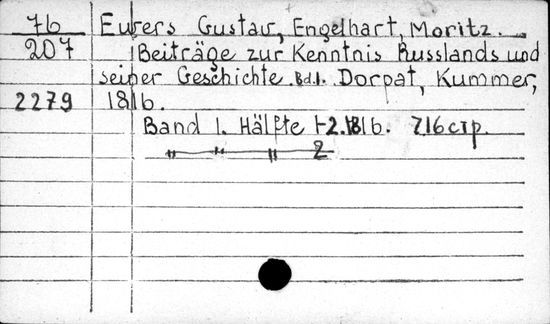 76 Ewers Gustav, Engelhart, Moritz.
207 Beiträge zur Kenntnis Russlands und
seiner Geschichte. Bd.1. Dorpat, Kummer,
2279 1816.
Band 1. Hälfte 1-2. 1816. 716 стр.
" " " 2